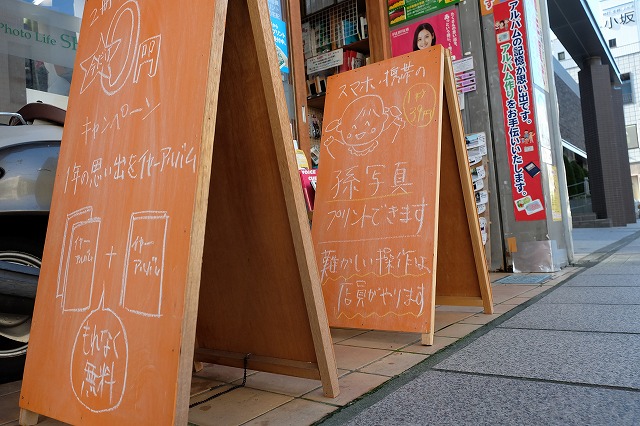 Photo Life S
2冊
0円
キャンペーン
1年の思い出をイヤーアルバム
イヤー
アルバム
+
イヤー
アルバム
もれなく
無料
スマホ・携帯の
1分
39円
孫写真
プリントできます
難かしい操作は
店員がやります
アルバムの記憶が思い出です。
アルバム作りをお手伝いします。
小坂